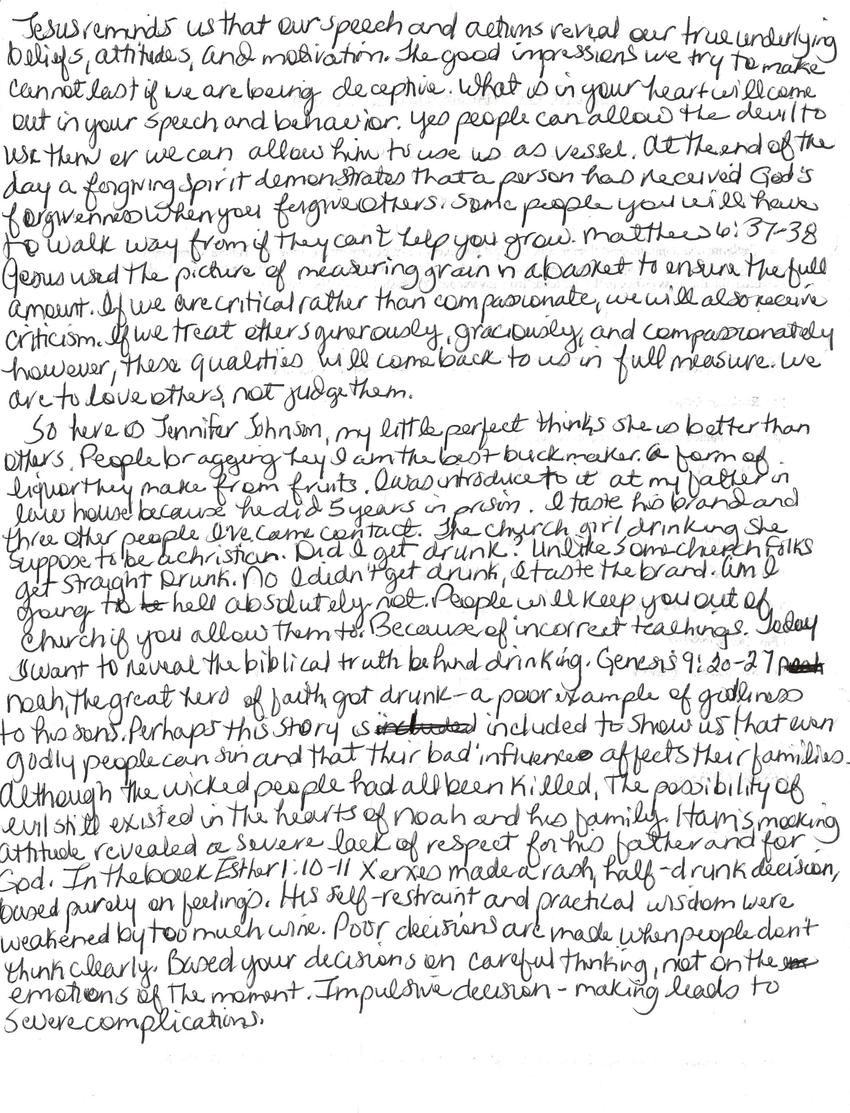 Jesus reminds us that our speech and actions reveal our true underlying
beliefs, attitudes, and motivation. The good impressions we try to make
cannot last if we are being deceptive. What is in your heart will come
out in your speech and behavior. Yes people can allow the devil to
use them or we can allow him to use us as vessel. At the end of the
day a forgiving spirit demonstrates that a person has received God's
forgiveness when you forgive others. Some people you will have
to walk way from if they can't help you grow. Matthew 6:37-38
Jesus used the picture of measuring grain in a basket to ensure the full
amount. If we are critical rather than compassionate, we will also receive
criticism. If we treat others generously, graciously, and compassionately
however, these qualities will come back to us in full measure. We
are to love others, not judge them.
So here is Jennifer Johnson, my little perfect thinks she is better than
others. People bragging hey I am the best buck maker. A form of
liquor they make from fruits. I was introduce to it at my father in
law house because he did 5 years in prison. I taste his brand and
three other people I've came contact. The church girl drinking she
suppose to be a christian. Did I get drunk? Unlike some church folks
get straight Drunk. No I didn't get drunk, I taste the brand. Am I
going to hell absolutely not. People will keep you out of
church if you allow them to. Because of incorrect teachings. Today
I want to reveal the biblical truth behind drinking. Genesis 9:20-27
Noah, the great hero of faith, got drunk - a poor example of godliness
to his sons. Perhaps this story is included to show us that even
godly people can sin and that their bad influence affects their families.
Although the wicked people had all been killed, The possibility of
evil still existed in the hearts of Noah and his family. Ham's mocking
attitude revealed a severe lack of respect for his father and for
God. In the book Esther 1:10-11 Xerxes made a rash, half-drunk decision,
based purely on feelings. His self-restraint and practical wisdom were
weakened by too much wine. Poor decisions are made when people don't
think clearly. Based your decisions on careful thinking, not on the
emotions of The moment. Impulsive decision - making leads to
severe complications.